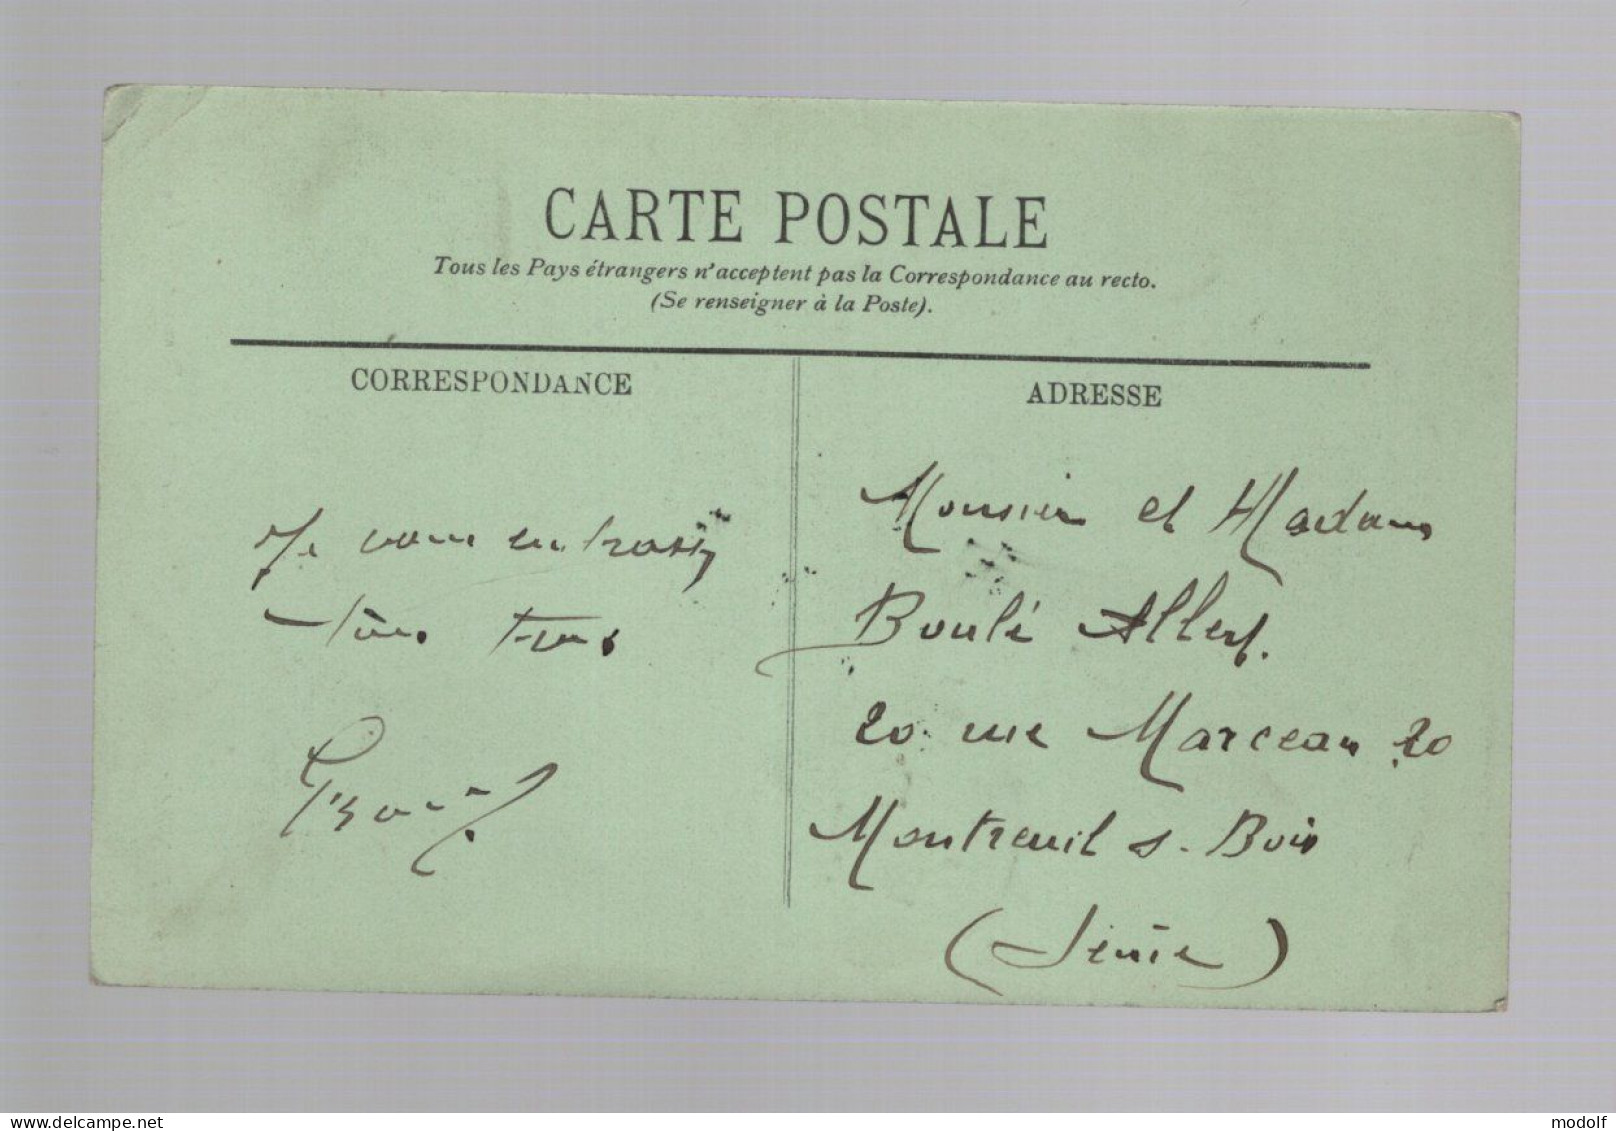 CARTE POSTALE
Tous les Pays étrangers n'acceptent pas la Correspondance au recto.
(Se renseigner à la Poste).
CORRESPONDANCE
ADRESSE
Je vous embrasse
tous
Monsieur et Madame
Boulé
20 rue Marceau 20
Montreuil s. Bois
(Seine)
www.delcampe.net
modolf